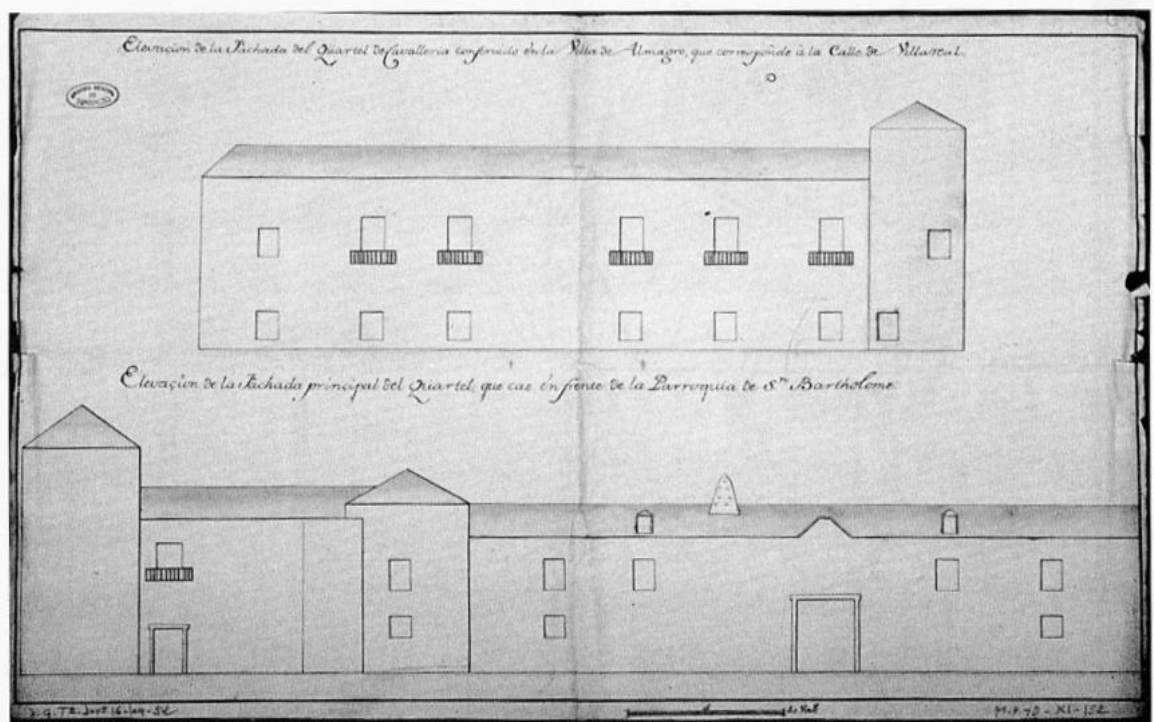 Elevacion de la Fachada del Quartel de Cavalleria construido en la Villa de Almagro, que corresponde à la Calle de Villareal.
Elevacion de la Fachada principal del Quartel, que cae en frente de la Parroquia de Sn. Bartholome.
M.P. y D - XI - 152